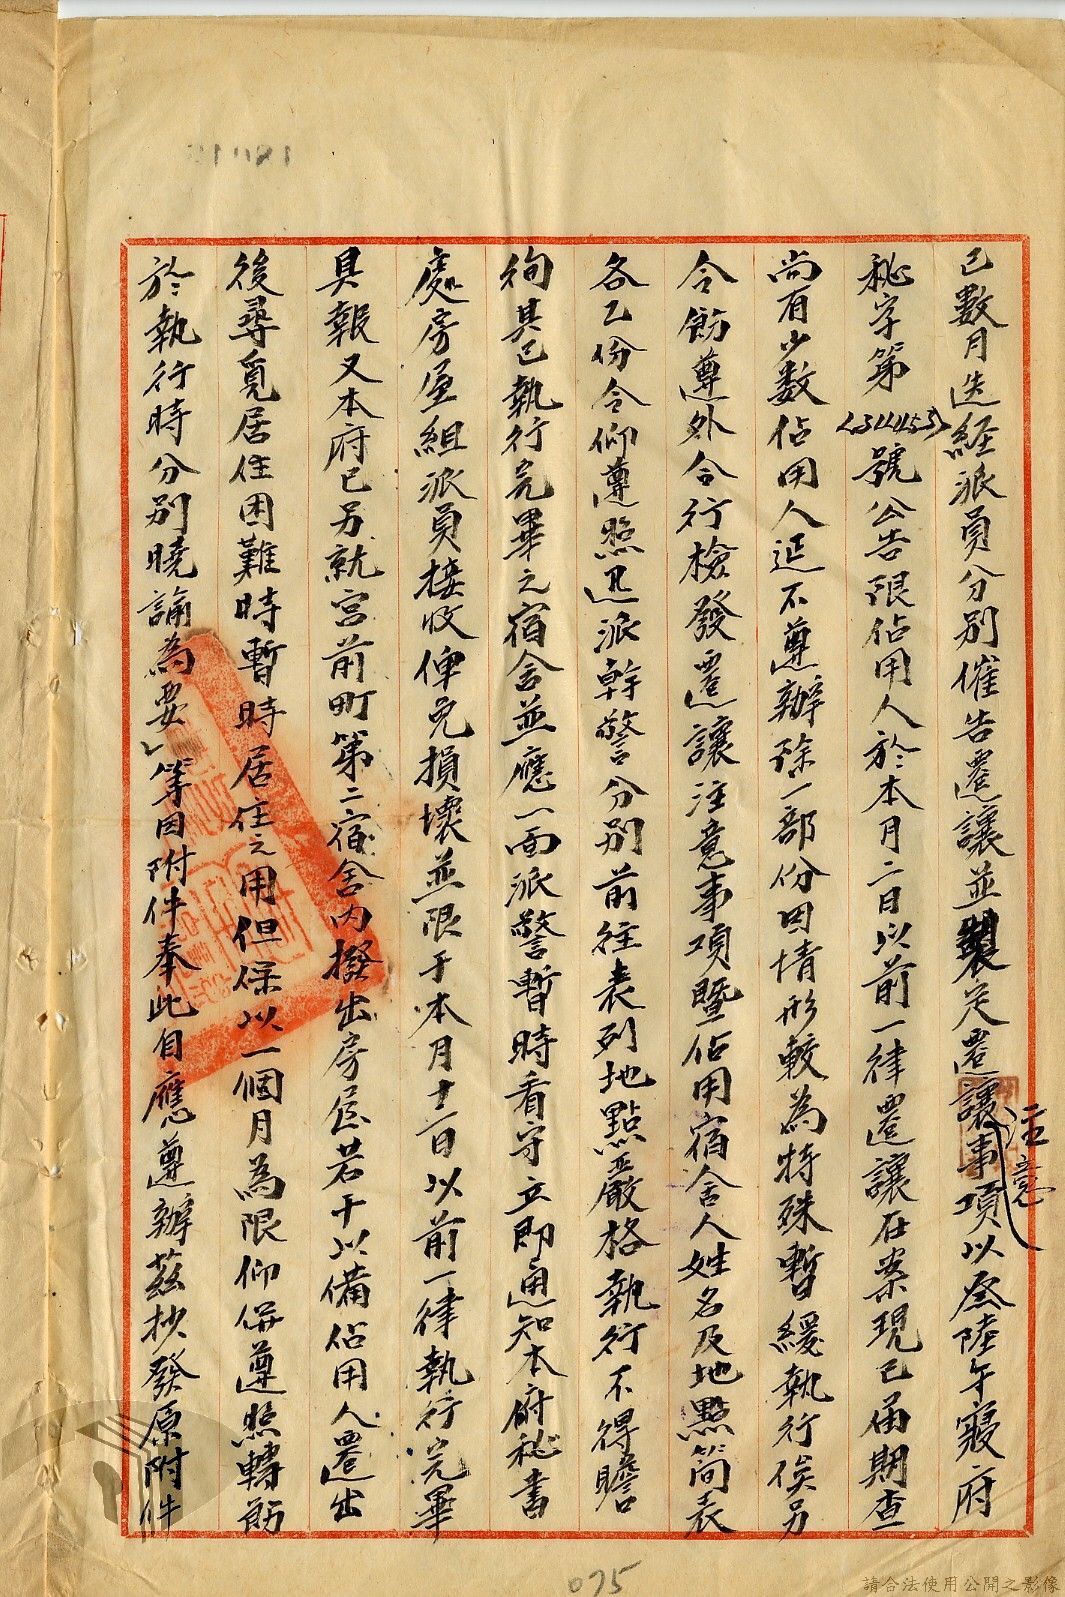 已數月迭經派員分別催告遷讓並製定遷讓注意事項以叅陸午寢府
秘字第<31455>號公告限佔用人於本月二日以前一律遷讓在案現已屆期查
尚有少數佔用人延不遵辦除一部份因情形較為特殊暫緩執行俟另
令飭遵外合行檢發遷讓注意事項暨佔用宿舍人姓名及地點簡表
各乙份令仰遵照迅派幹警分別前往表列地點嚴格執行不得瞻
徇其已執行完畢之宿舍並應一面派警暫時看守立即通知本府秘書
處房屋組派員接收俾免損壞並限于本月十二日以前一律執行完畢
具報又本府已另就宮前町第二宿舍內撥出房屋若干以備佔用人遷出
後尋覓居住困難時暫時居住之用但係以一個月為限仰併遵照轉飭
於執行時分別曉諭為要」等因附件奉此自應遵辦茲抄發原附件
075
請合法使用公開之影像